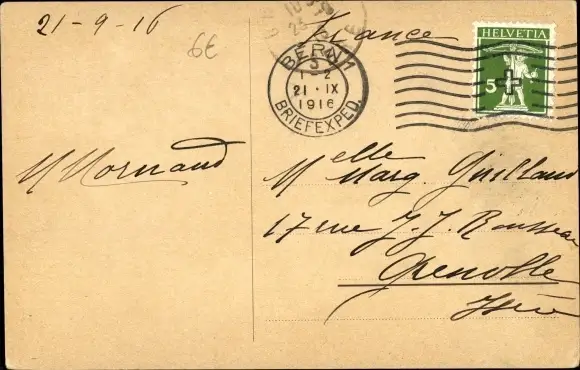 21-9-16
6€
France
BERN 1
3
1-2
21·IX
1916
BRIEFEXPED.
HELVETIA
5
Melle Marg. Guilland
17 rue J. J. Rousseau
Grenoble
Isère